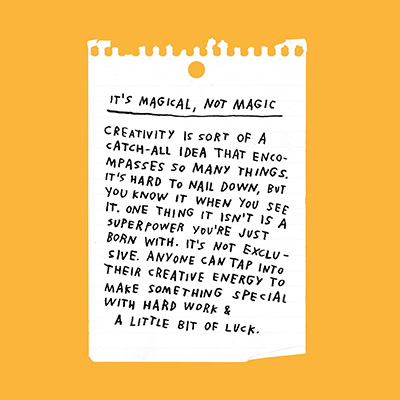 IT'S MAGICAL, NOT MAGIC
CREATIVITY IS SORT OF A
CATCH-ALL IDEA THAT ENCO-
MPASSES SO MANY THINGS.
IT'S HARD TO NAIL DOWN, BUT
YOU KNOW IT WHEN YOU SEE
IT. ONE THING IT ISN'T IS A
SUPERPOWER YOU'RE JUST
BORN WITH. IT'S NOT EXCLU-
SIVE. ANYONE CAN TAP INTO
THEIR CREATIVE ENERGY TO
MAKE SOMETHING SPECIAL
WITH HARD WORK &
A LITTLE BIT OF LUCK.